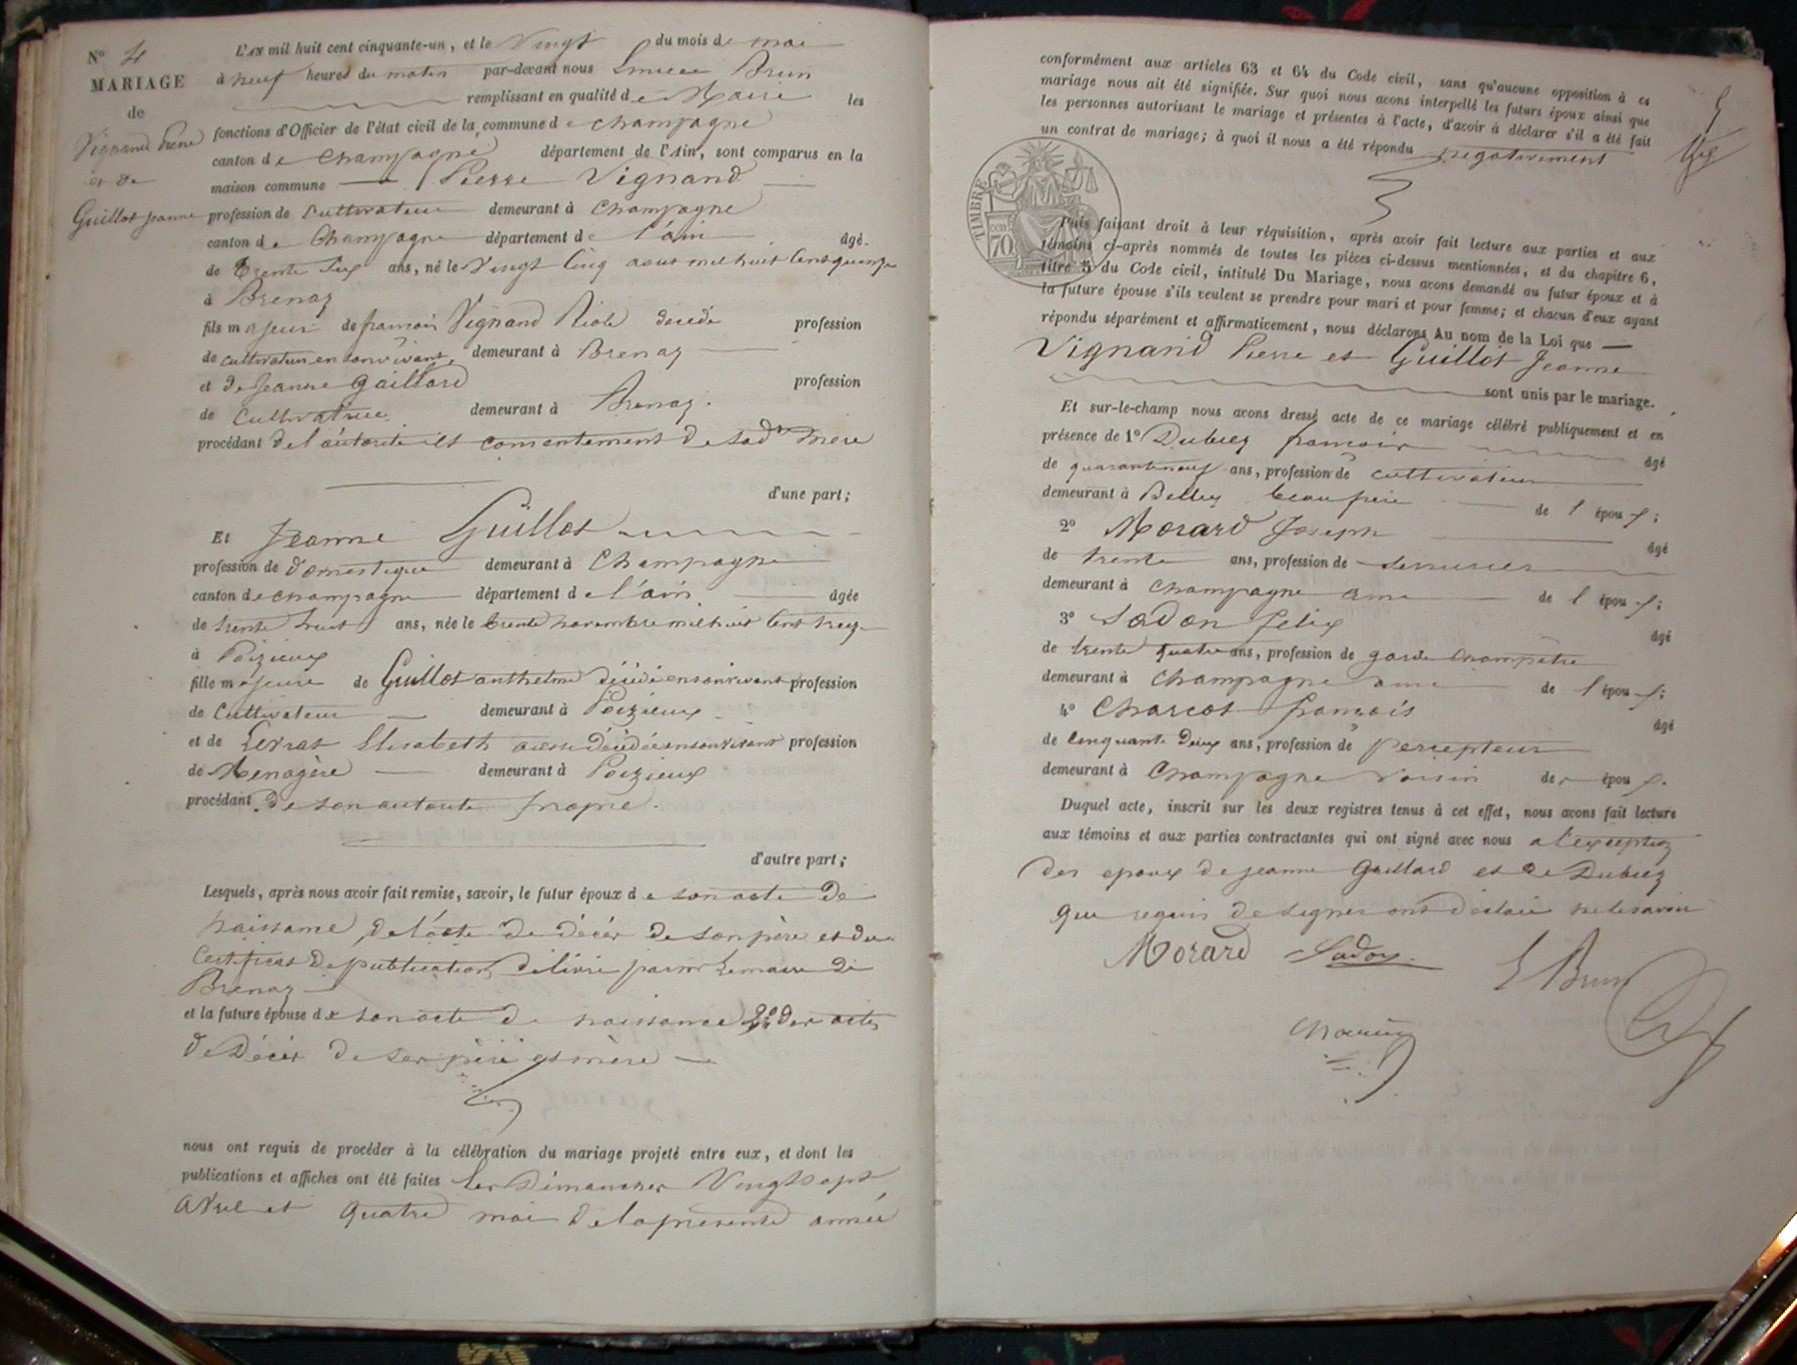 N° 4
MARIAGE
de
Vignand Pierre
et de
Guillot Jeanne
L'AN mil huit cent cinquante-un, et le Vingt du mois de mai
à neuf heures du matin par-devant nous Brun
remplissant en qualité de Maire les
fonctions d'Officier de l'état civil de la commune de Champagne
canton de Champagne département de l'Ain, sont comparus en la
maison commune Pierre Vignand
profession de cultivateur demeurant à Champagne
canton de Champagne département de l'ain âgé
de trente six ans, né le Vingt Cinq aout mil huit Cent quinze
à Brenaz
fils majeur de francois Vignand décédé profession
de cultivateur en son vivant, demeurant à Brenaz
et de Jeanne Gaillard profession
de Cultivatrice demeurant à Brenaz.
procédant de l'autorité et consentement de sadte mère
d'une part;
Et Jeanne Guillot
profession de domestique demeurant à Champagne
canton de champagne département de l'ain âgée
de trente huit ans, née le trente novembre mil huit Cent treize
à Poizieux
fille majeure de Guillot anthelme décédé en son vivant profession
de Cultivateur demeurant à Poizieux
et de Levrat Elisabeth aussi décédée en son vivant profession
de Menagère demeurant à Poizieux
procédant de son autorité propre.
d'autre part;
Lesquels, après nous avoir fait remise, savoir, le futur époux de son acte de
naissance, de l'acte de décès de son père et du
Certificat de publication délivré par Mr Lemaire de
Brenaz
et la future épouse de son acte de naissance 2° des actes
de Décès de ses père et mère
nous ont requis de procéder à la célébration du mariage projeté entre eux, et dont les
publications et affiches ont été faites les Dimanches Vingt sept
avril et quatre mai de la présente année
conformément aux articles 63 et 64 du Code civil, sans qu'aucune opposition à ce
mariage nous ait été signifiée. Sur quoi nous avons interpellé les futurs époux ainsi que
les personnes autorisant le mariage et présentes à l'acte, d'avoir à déclarer s'il a été fait
un contrat de mariage; à quoi il nous a été répondu negativement
TIMBRE
70
Puis faisant droit à leur réquisition, après avoir fait lecture aux parties et aux
témoins ci-après nommés de toutes les pièces ci-dessus mentionnées, et du chapitre 6,
titre 5 du Code civil, intitulé Du Mariage, nous avons demandé au futur époux et à
la future épouse s'ils veulent se prendre pour mari et pour femme; et chacun d'eux ayant
répondu séparément et affirmativement, nous déclarons Au nom de la Loi que
Vignand Pierre et Guillot Jeanne
sont unis par le mariage.
Et sur-le-champ nous avons dressé acte de ce mariage célébré publiquement et en
présence de 1° Dubiez francois âgé
de quarante neuf ans, profession de cultivateur
demeurant à Belley beau père de l époux;
2° Morard Joseph âgé
de trente ans, profession de serrurier
demeurant à Champagne ami de l époux;
3° Sadon Felix âgé
de trente quatre ans, profession de garde champêtre
demeurant à Champagne ami de l époux;
4° Charcot françois âgé
de Cinquante deux ans, profession de percepteur
demeurant à Champagne voisin des époux.
Duquel acte, inscrit sur les deux registres tenus à cet effet, nous avons fait lecture
aux témoins et aux parties contractantes qui ont signé avec nous a l'exception
des epoux de jeanne Gaillard et de Dubiez
que requis de signer ont déclaré ne le savoir
Morard Sadon
Brun